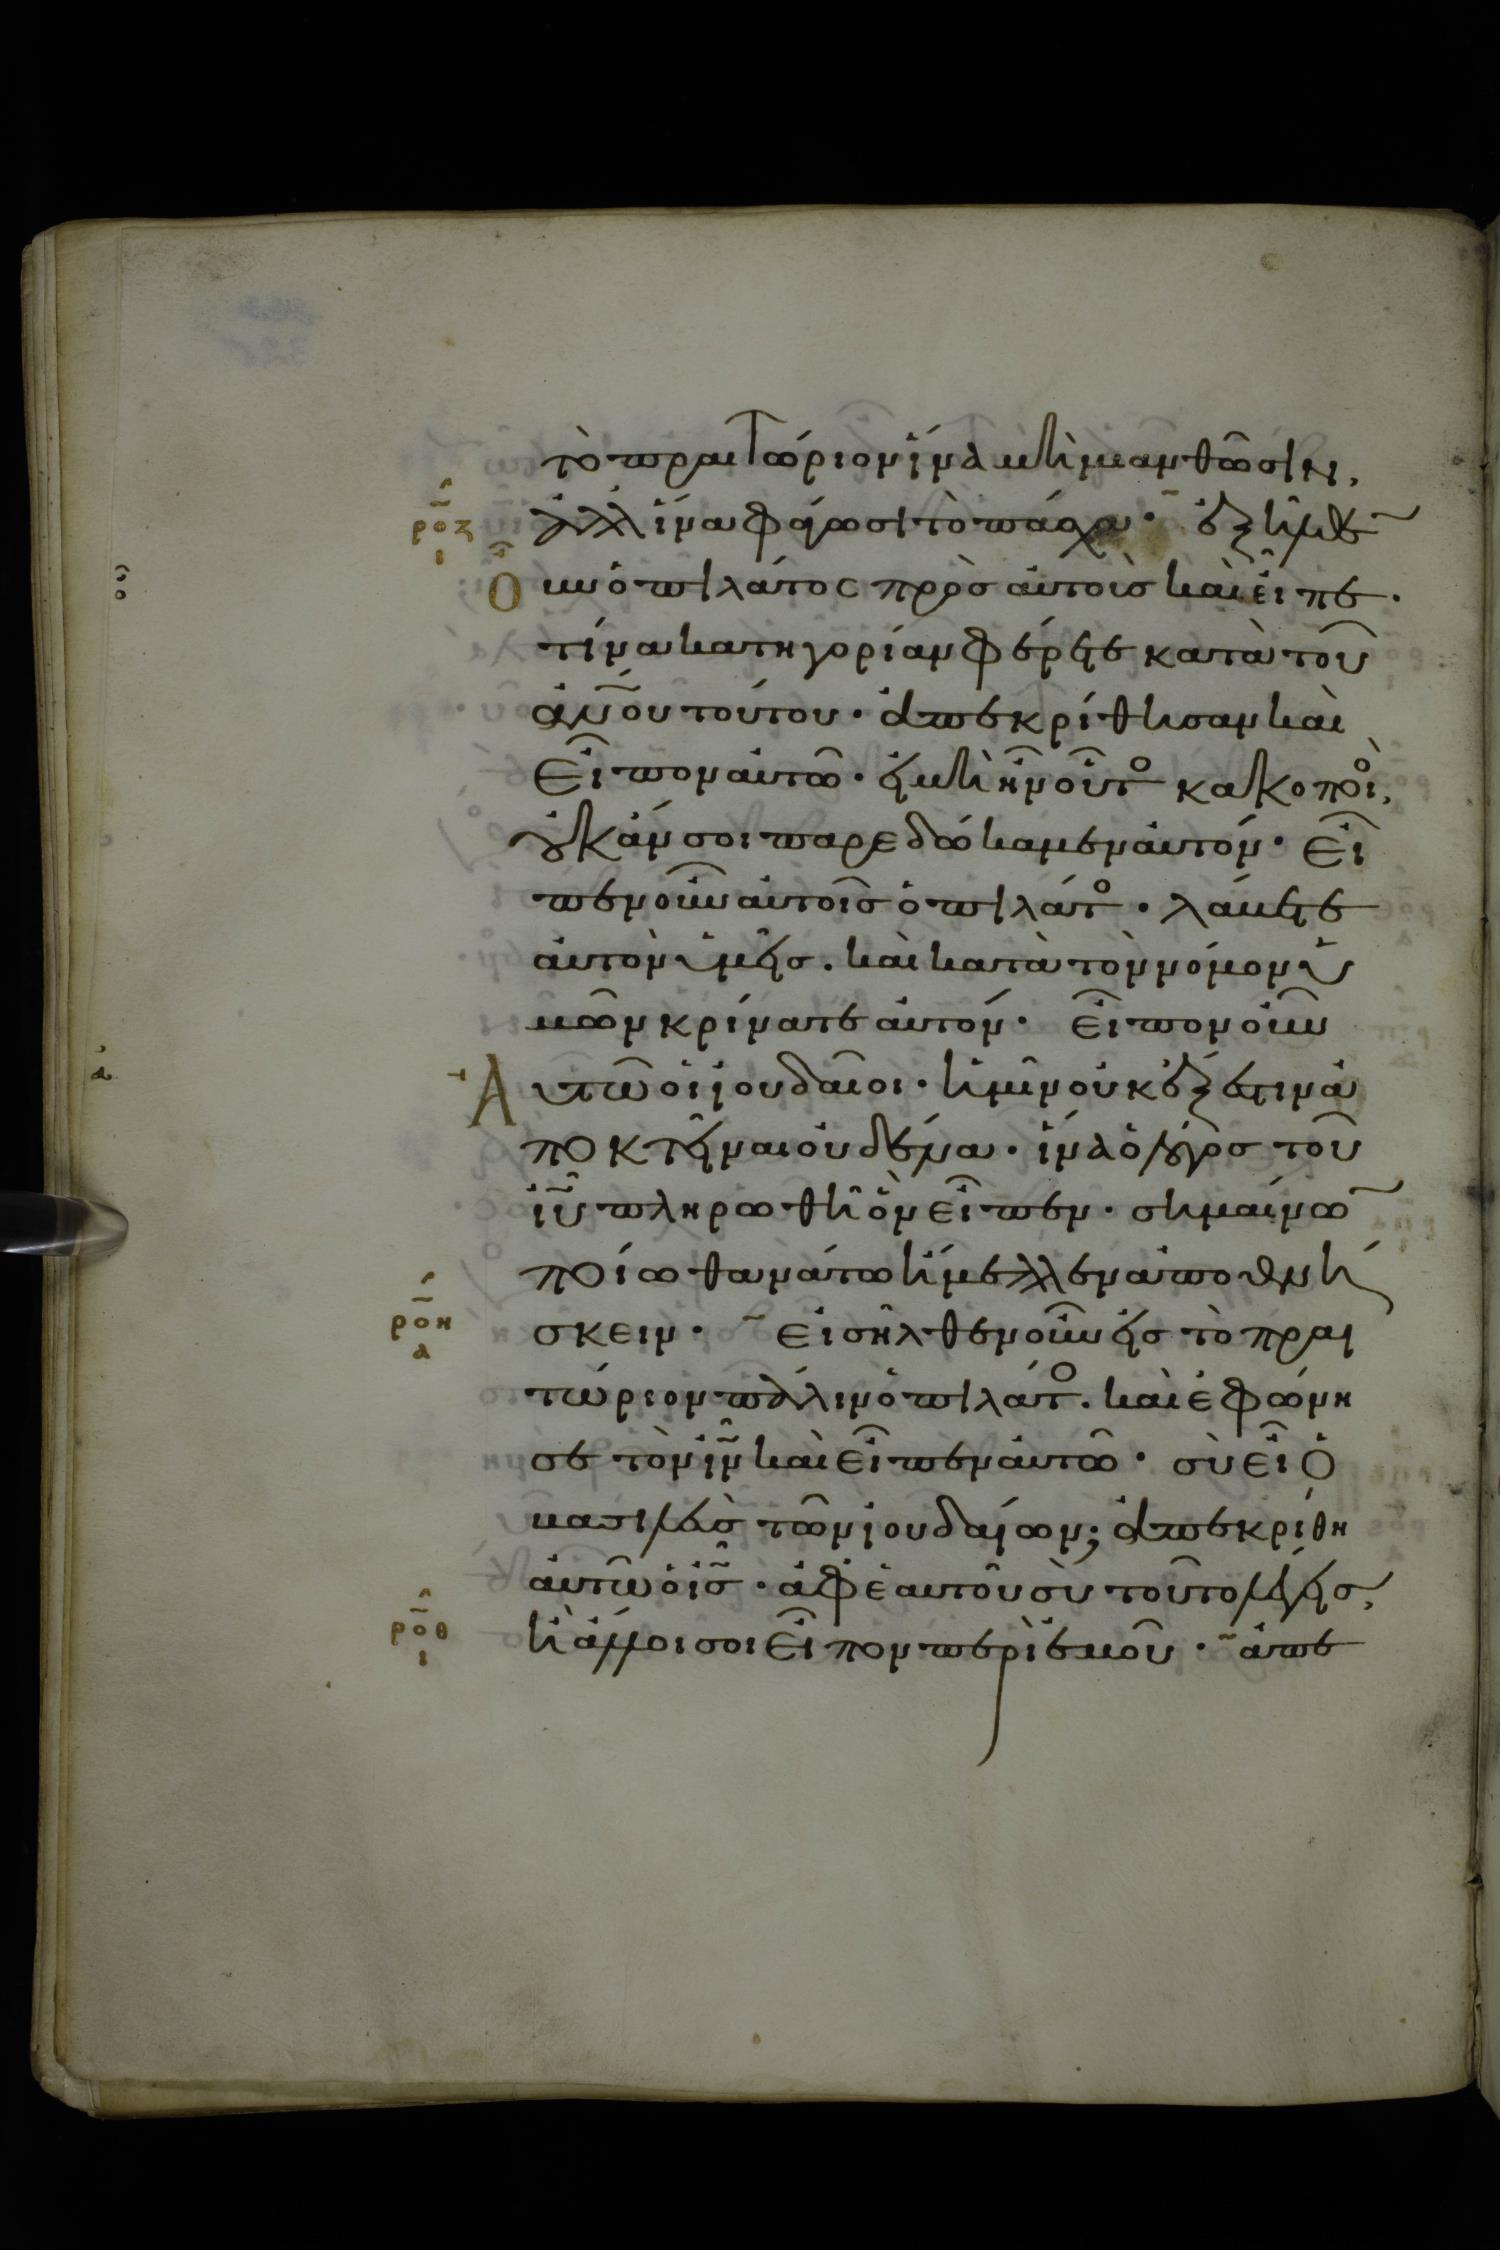 τὸ πραιτώριον ἵνα μὴ μιανθῶσιν,
ρο̄ζ
ι
ἀλλ' ἵνα φάγωσι τὸ πάσχα· ἐξῆλθε
Ὁ
υν ὁ πιλάτος πρὸς αὐτοὺς καὶ εἶπε·
τίνα κατηγορίαν φέρετε κατὰ τοῦ
ἀν̅ου τούτου· ἀπεκρίθησαν καὶ
εἶπον αὐτῶ· εἰ μὴ ἦν οὗτος κακοποιὸς,
οὐκ ἄν σοι παρεδώκαμεν αὐτόν· εἶ
πεν οὖν αὐτοῖς ὁ πιλάτος· λάβετε
αὐτὸν ὑμεῖς. καὶ κατὰ τὸν νόμον ὑ
μῶν κρίνατε αὐτόν· εἶπον οὖν
Α
ὐτῶ οἱ ἰουδαῖοι· ἡμῖν οὐκ ἔξεστιν ἀ
ποκτεῖναι οὐδένα· ἵνα ὁ λόγος τοῦ
ἰ̅υ πληρωθῆ ὃν εἶπεν· σημαίνων
ποίω θανάτω ἤμελλεν ἀποθνή
ρο̄η
α
σκειν· εἰσῆλθεν οὖν εἰς τὸ πραι
τώριον πάλιν ὁ πιλάτος. καὶ ἐφώνη
σε τὸν ἰ̅ν καὶ εἶπεν αὐτῶ· σὺ εἶ ὁ
βασιλεὺς τῶν ἰουδαίων; ἀπεκρίθη
αὐτῶ ὁ ἰ̅ς· ἀφ' ἑαυτοῦ σὺ τοῦτο λέγεις,
ρο̄θ
ι
ἢ ἄλλοι σοι εἶπον περὶ ἐμοῦ· ἀπε